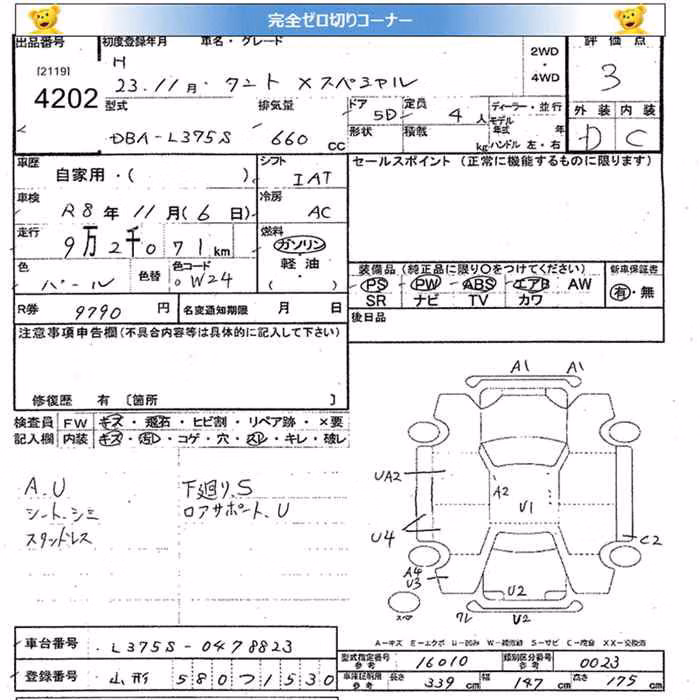 完全ゼロ切りコーナー
出品番号 初度登録年月 車名・グレード 評価点
[2119] H 2WD
4202 23.11月 タント Xスペシャル ・ 3
4WD
型式 排気量 ドア 5D 定員 4人 ディーラー・並行 外装 内装
モデル
DBA-L375S 660 CC 形状 積載 kg 年式 年 D C
ハンドル 左・右
車歴 自家用・( ) シフト IAT セールスポイント (正常に機能するものに限ります)
車検 R8年11月(6日) 冷房 AC
走行 9万2千071km 燃料 ガソリン
軽油
( )
色 パール 色替 色コード W24
装備品 (純正品に限り○をつけてください) 新車保証書
PS PW ABS エアB AW 有・無
SR ナビ TV カワ
R券 9790円 名変通知期限 月 日 後日品
注意事項申告欄(不具合内容等は具体的に記入して下さい)
修復歴 有 〔箇所 〕
検査員 FW キズ・飛石・ヒビ割・リペア跡・×要
記入欄 内装 キズ・汚レ・コゲ・穴・スレ・キレ・破レ
A.U 下廻り.S
シート.シミ ロアサポート.U
スタッドレス
A1 A1
UA2 A2 U1
U4 C2
A4
U3 U2
スペア ワレ U2
A-キズ E-エクボ U-凹み W-補修跡 S-サビ C-腐食 XX-交換済
車台番号 L375S-0478823
型式指定番号 参考 16010 類別区分番号 参考 0023
登録番号 山形 580つ1530
車庫証明用 参考 長さ 339cm 幅 147cm 高さ 175cm